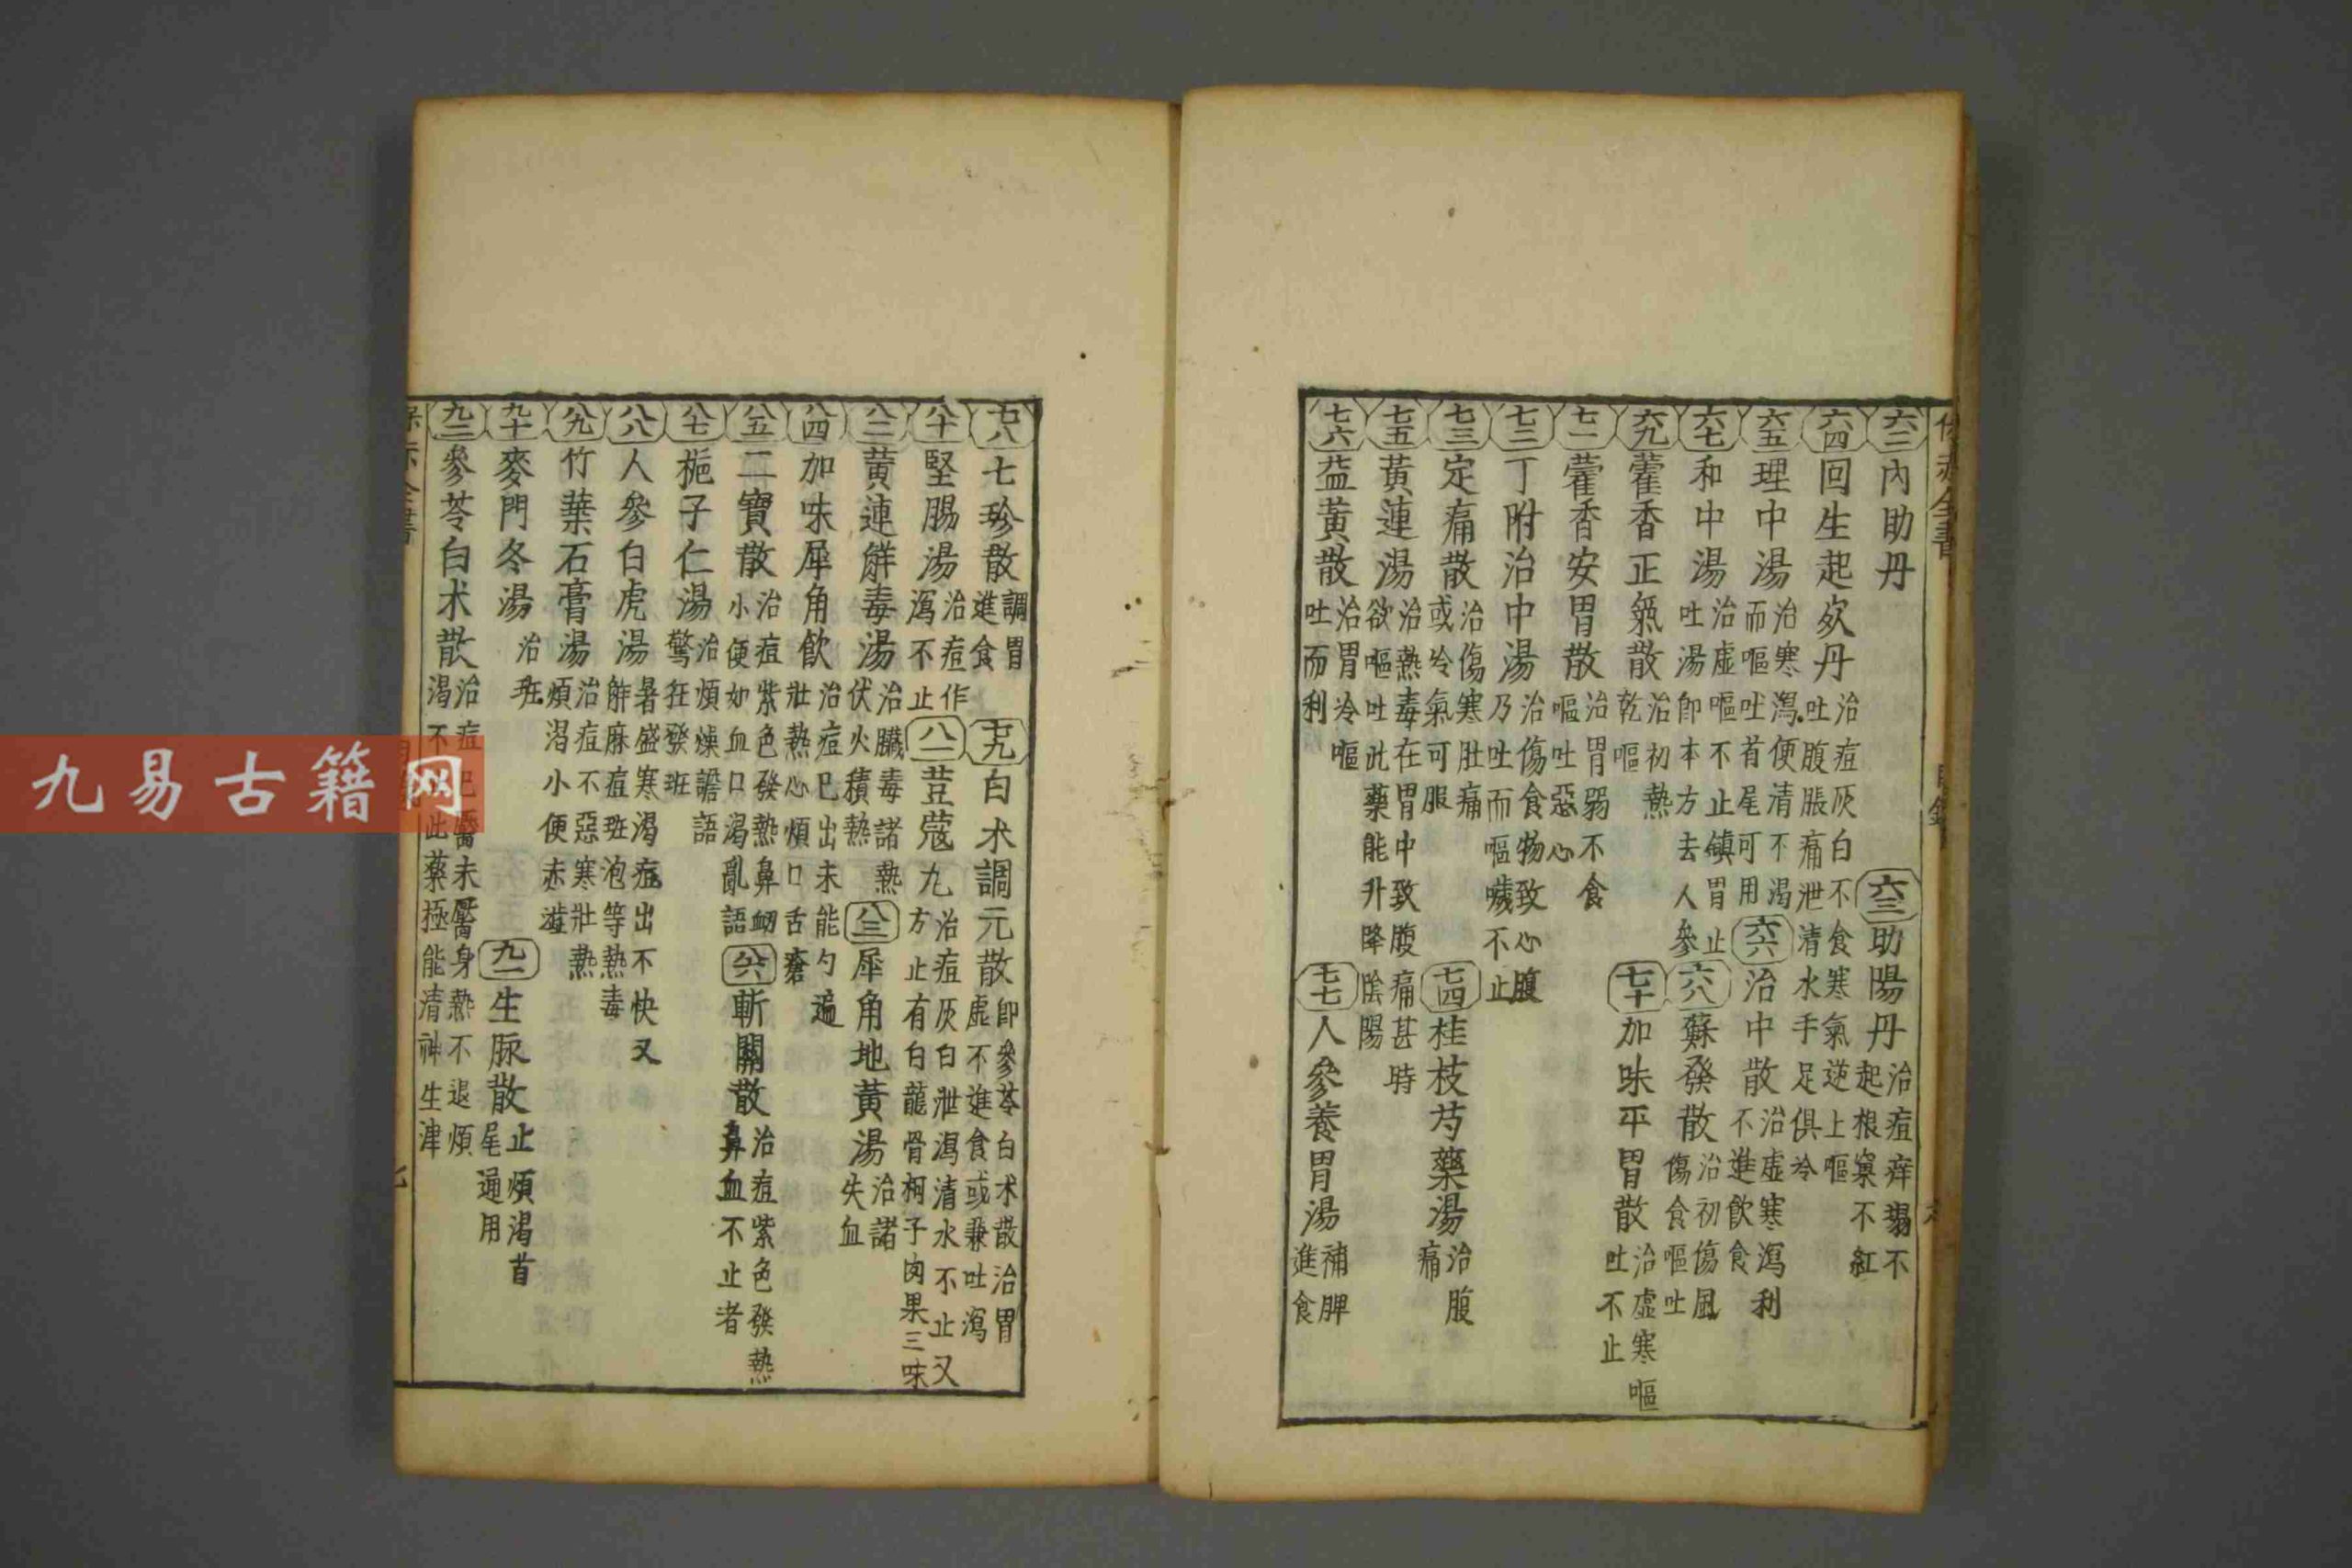 六二 內助丹 六三 助陽丹 治痘痒塌不起根窠不紅
六四 回生起死丹 治痘灰白不食寒氣逆上嘔吐腹脹痛泄清水手足俱冷
六五 理中湯 治寒瀉便清不渴而嘔吐首尾可用 六六 治中散 治虛寒瀉利不進飲食
六七 和中湯 治虛嘔不止鎮胃止吐湯卽本方去人參 六八 蘇發散 治初傷風傷食嘔吐
六九 藿香正氣散 治初熱乾嘔 七十 加味平胃散 治虛寒嘔吐不止
七一 藿香安胃散 治胃弱不食嘔吐惡心
七二 丁附治中湯 治傷食物致心腹乃吐吐而嘔噦不止
七三 定痛散 治傷寒肚痛或冷氣可服 七四 桂枝芍藥湯 治腹痛
七五 黃連湯 治熱毒在胃中致腹痛甚時欲嘔吐此藥能升降陰陽
七六 益黃散 治胃冷嘔吐而利 七七 人參養胃湯 補脾進食
七八 七珍散 調胃進食 七九 白朮調元散 卽參苓白朮散治胃虛不進食或兼吐瀉
八十 堅腸湯 治痘作瀉不止 八一 荳蔻丸 治痘灰白泄瀉清水不止又方止有白龍骨柯子肉果三味
八二 黃連解毒湯 治臟毒諸熱伏火積熱 八三 犀角地黃湯 治諸失血
八四 加味犀角飲 治痘已出未能勻遍壯熱心煩口舌瘡
八五 二寶散 治痘紫色發熱鼻衂小便如血口渴亂語 八六 斬關散 治痘紫色發熱鼻血不止者
八七 梔子仁湯 治煩燥譫語驚狂發班
八八 人參白虎湯 暑盛寒渴痘出不快又解麻痘班泡等熱毒
八九 竹葉石膏湯 治痘不惡寒壯熱煩渴小便赤澁
九十 麥門冬湯 治班 九一 生脉散 止煩渴首尾通用
九二 參苓白朮散 治痘已靨未靨身熱不退煩渴不此藥極能清神生津
九易古籍网